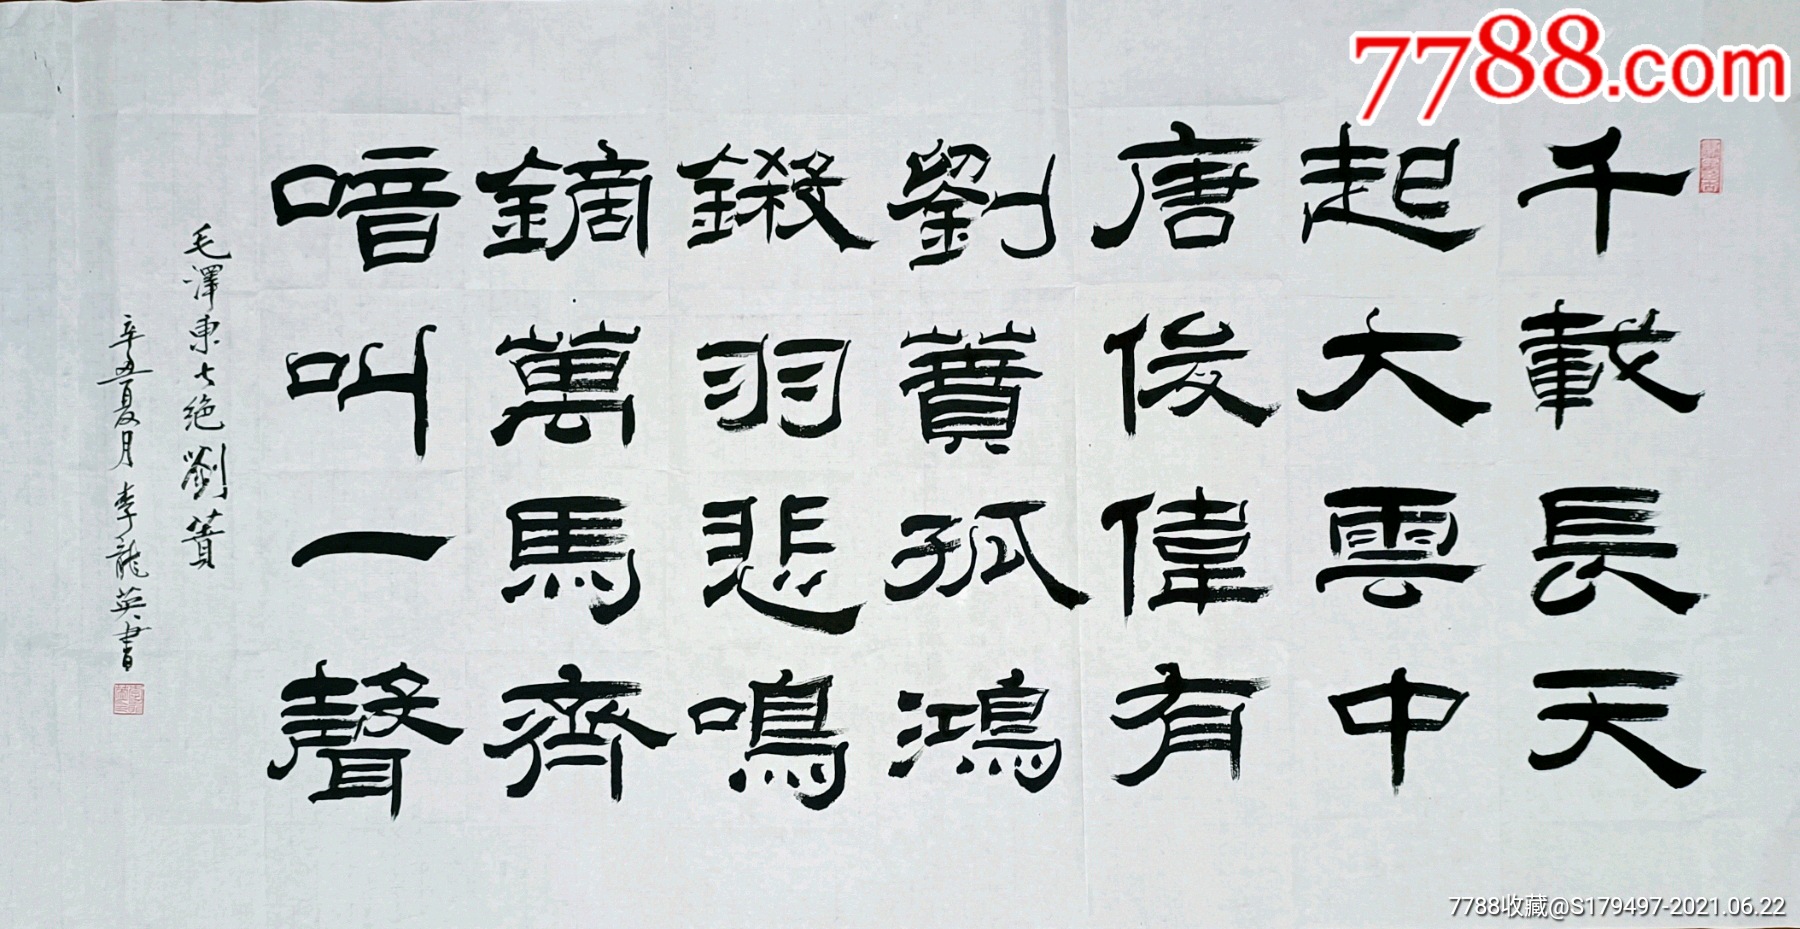 7788.com
千載長天
起大雲中
唐俊偉有
劉蕡孤鴻
鎩羽悲鳴
鏑萬馬齊
喑叫一聲
毛澤東七绝劉蕡
辛丑夏月李龍英書
7788收藏@S179497-2021.06.22